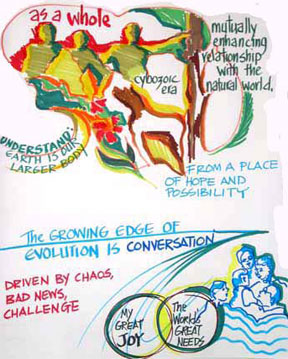 as a whole
mutually
enhancing
relationship
with the
natural world.
cybozoic
era
UNDERSTAND
EARTH IS OUR
LARGER BODY
FROM A PLACE
OF HOPE AND
POSSIBILITY
The GROWING EDGE OF
EVOLUTION IS CONVERSATION
DRIVEN BY CHAOS,
BAD NEWS,
CHALLENGE
MY
GREAT
JOY
The
World's
GREAT
NEEDS